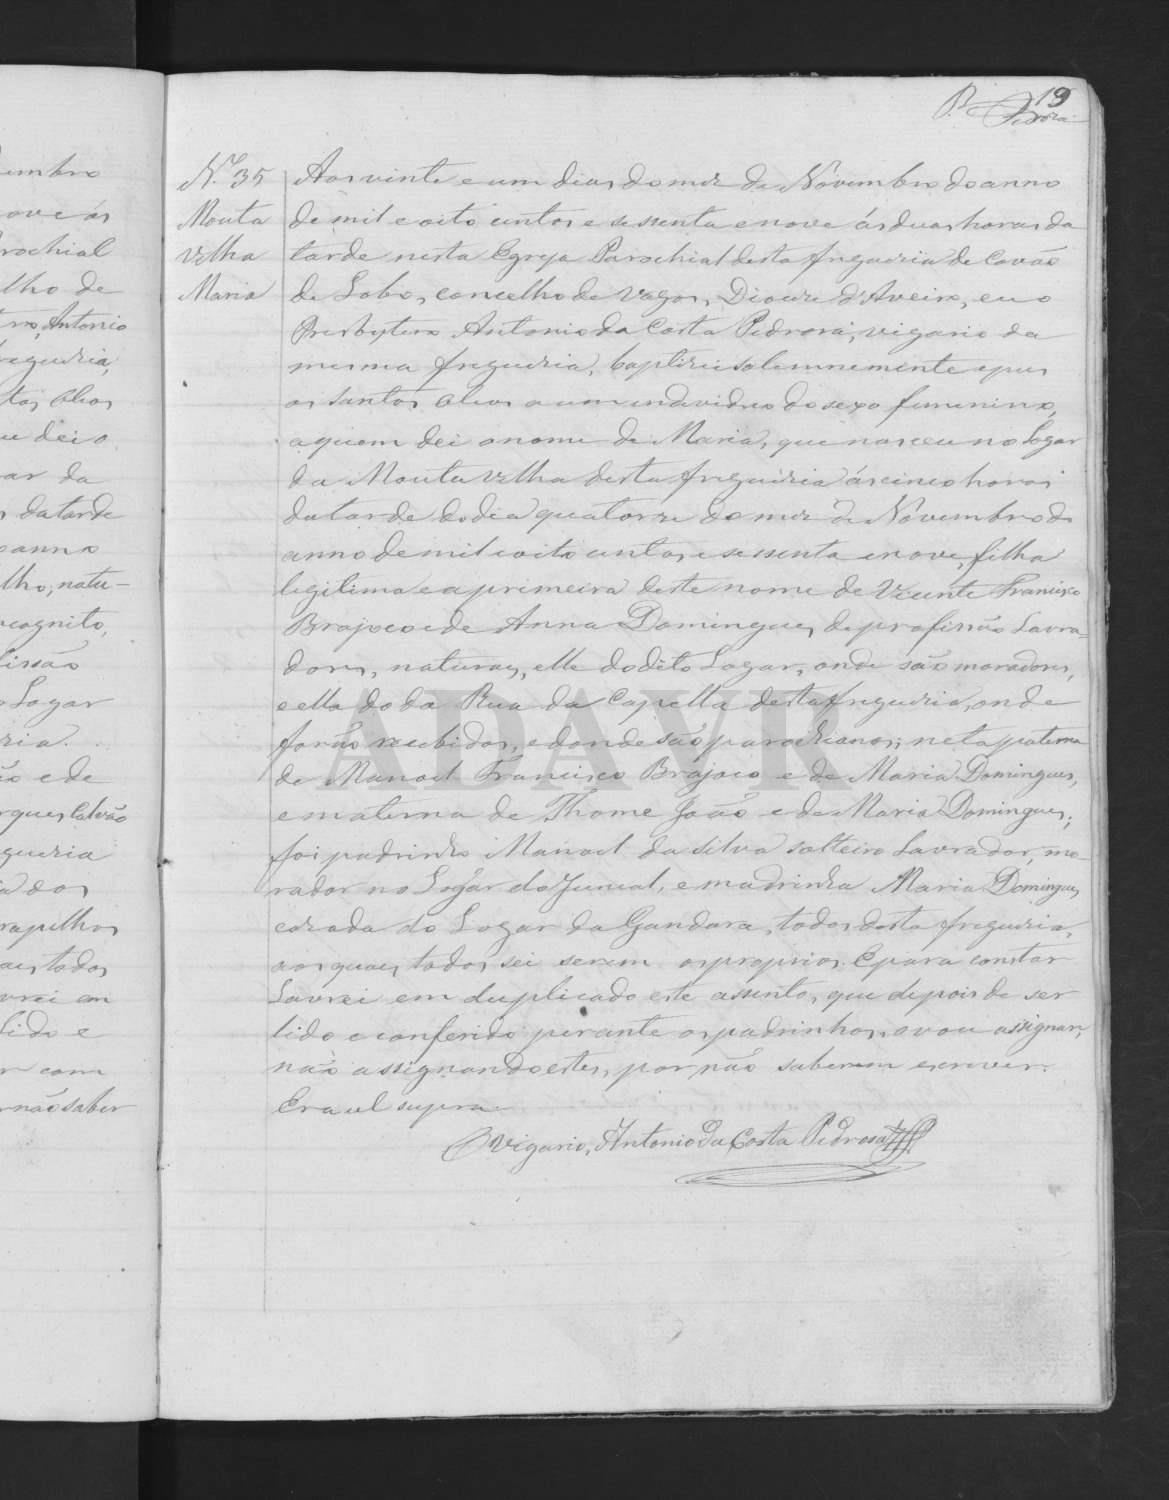 19
Pedroza
N.º 35
Mouta
Velha
Maria
Aos vinte e um dias do mez de Novembro do anno
de mil e oito centos e sessenta e nove ás duas horas da
tarde nesta Egreja Parochial desta freguezia de Covão
de Lobo, concelho de Vagos, Dioceze d'Aveiro, eu o
Presbytero Antonio da Costa Pedroza, vigario da
mesma freguezia, baptizei solemnemente e puz
os santos oleos a um individuo do sexo feminino,
a quem dei o nome de Maria, que nasceu no Logar
da Mouta velha desta freguezia ás cinco horas
da tarde do dia quatorze do mez de Novembro do
anno de mil e oito centos e sessenta e nove, filha
legitima e a primeira deste nome de Vicente Francisco
Brajoco e de Anna Domingues, de profissão Lavra-
dores, naturaes, elle do dito Logar, onde são moradores,
e ella do da Rua da Capella desta freguezia, onde
forão recebidos, e donde são parochianos; neta paterna
de Manoel Francisco Brajoco e de Maria Domingues,
e materna de Thome João e de Maria Domingues;
foi padrinho Manoel da Silva solteiro Lavrador, mo-
rador no Logar do Juncal, e madrinha Maria Domingues
cazada do Logar da Gandara, todos desta freguezia,
aos quaes todos sei serem os proprios. E para constar
Lavrei em duplicado este assento, que depois de ser
lido e conferido perante os padrinhos, o vou assignar,
não assignando estes, por não saberem escrever.
Era ut supra
O vigario, Antonio da Costa Pedroza
ADAVR
embro
ove ás
rochial
lho de
Antonio
freguezia,
tos oleos
ue dei o
ar da
s da tarde
o anno
lho, natu-
ncognito,
fissão
o Logar
zia.
ão e de
rques Calvão
guezia
a dos
rapilhos
aes todos
avrei em
lido e
r com
r não saber